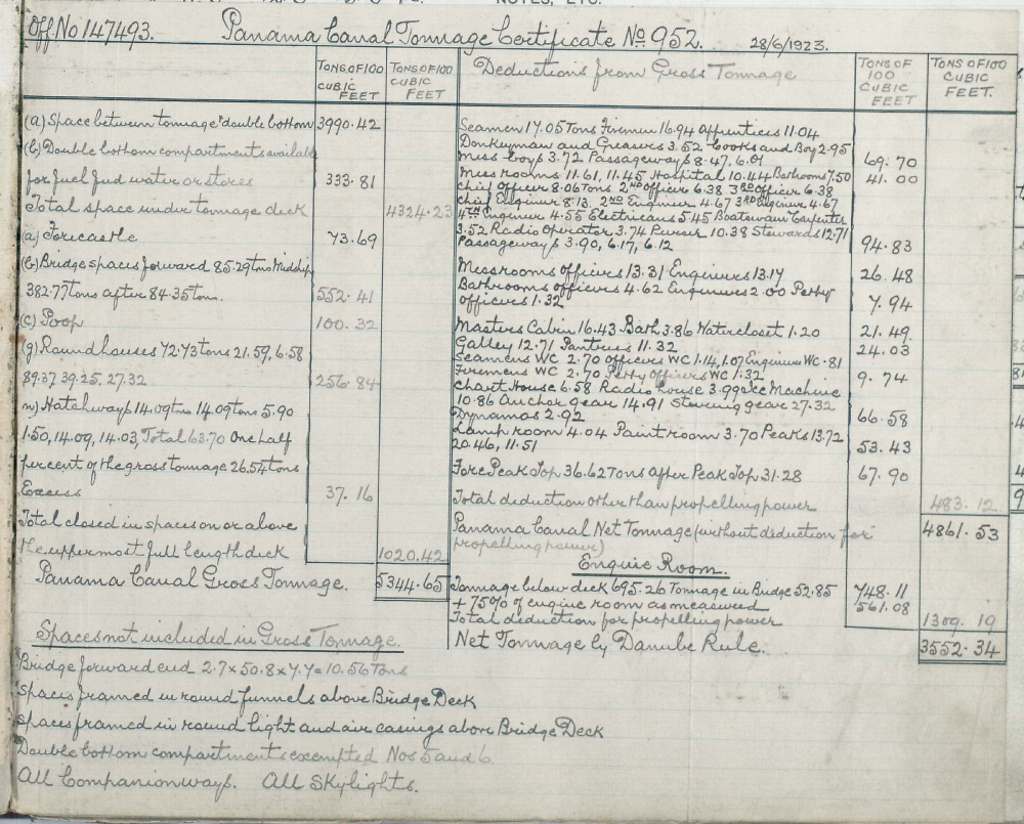 NOTES, ETC.
Off. No 147493. Panama Canal Tonnage Certificate No 952. 28/6/1923.
TONS OF 100 CUBIC FEET
TONS OF 100 CUBIC FEET
Deductions from Gross Tonnage
TONS OF 100 CUBIC FEET
TONS OF 100 CUBIC FEET.
(a) Space between tonnage & double bottom 3990.42
(b) Double bottom compartments available
for fuel feed water or stores 333.81
Total space under tonnage deck 4324.23
(a) Forecastle 73.69
(b) Bridge spaces forward 85.29 tons Midship
382.77 tons after 84.35 tons. 552.41
(c) Poop 100.32
(g) Roundhouses 72.73 tons 21.59, 6.58
89.37 39.25, 27.32 256.84
m) Hatchways 14.09 tons 14.09 tons 5.90
1.50, 14.09, 14.03, Total 63.70 One half
percent of the gross tonnage 26.54 tons
Excess 37.16
Total closed in spaces on or above
the uppermost full length deck 1020.42
Panama Canal Gross Tonnage. 5344.65
Spaces not included in Gross Tonnage.
Bridge forward end 2.7 x 50.8 x 7.7 = 10.56 Tons
Spaces framed in round funnels above Bridge Deck
Spaces framed in round light and air casings above Bridge Deck
Double bottom compartments exempted Nos 5 and 6.
All Companionways. All Skylights.
Seamen 17.05 Tons Firemen 16.94 Apprentices 11.04
Donkeyman and Greasers 3.52 Cooks and Boy 2.95
Mess boys 3.72 Passageways 8.47, 6.01 69.70
Mess rooms 11.61, 11.45 Hospital 10.44 Bathrooms 7.50 41.00
Chief Officer 8.06 Tons 2ND Officer 6.38 3RD Officer 6.38
Chief Engineer 8.13 2ND Engineer 4.67 3RD Engineer 4.67
4TH Engineer 4.55 Electricans 5.45 Boatswain Carpenter
3.52 Radio Operator 3.74 Purser 10.38 Stewards 12.71
Passageways 3.90, 6.17, 6.12 94.83
Messrooms officers 13.31 Engineers 13.17 26.48
Bathrooms officers 4.62 Engineers 2.00 Petty
officers 1.32 7.94
Masters Cabin 16.43 Bath 3.86 Watercloset 1.20 21.49
Galley 12.71 Pantries 11.32 24.03
Seamens WC 2.70 Officers WC 1.14, 1.07 Engineers WC .81
Firemens WC 2.70 Petty Officers WC 1.32 9.74
Chart House 6.58 Radio house 3.99 Ice Machine
10.86 Anchor gear 14.91 Steering gear 27.32
Dynamos 2.92 66.58
Lamp room 4.04 Paint room 3.70 Peaks 13.72
20.46, 11.51 53.43
Fore Peak Top 36.62 Tons After Peak Top 31.28 67.90
Total deduction other than propelling power 483.12
Panama Canal Net Tonnage (without deduction for 4861.53
propelling power)
Engine Room.
Tonnage below deck 695.26 Tonnage in Bridge 52.85 748.11
+ 75% of engine room as measured 561.08
Total deduction for propelling power 1309.19
Net Tonnage by Danube Rule. 3552.34